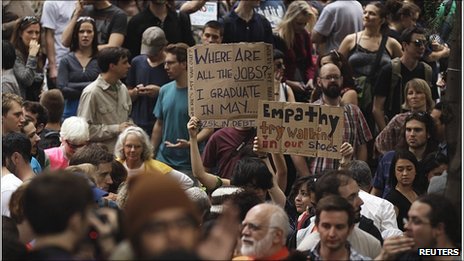 WHERE ARE
ALL THE JOBS?
I GRADUATE
IN MAY...
25K IN DEBT
Empathy
try walking
in our shoes
REUTERS